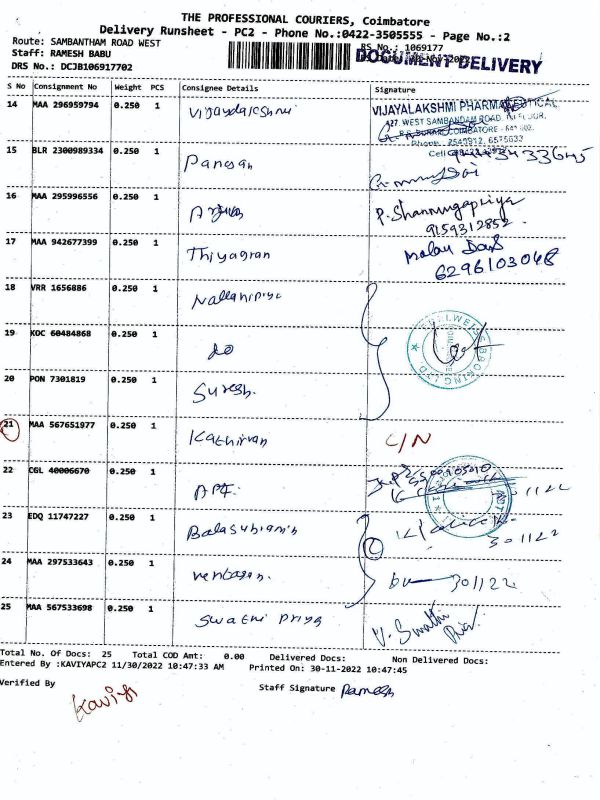 THE PROFESSIONAL COURIERS, Coimbatore
Delivery Runsheet - PC2 - Phone No.:0422-3505555 - Page No.:2
Route: SAMBANTHAM ROAD WEST
RS No.: 1069177
Staff: RAMESH BABU
DOCUMENT DELIVERY
DRS No.: DCJB106917702
S No Consignment No Weight PCS Consignee Details Signature
14 MAA 296959794 0.250 1 Vijayalakshmi
VIJAYALAKSHMI PHARMACEUTICAL
427, WEST SAMBANDAM ROAD,
COIMBATORE
Phone: 2540912, 6575633
15 BLR 2300989334 0.250 1
16 MAA 295996556 0.250 1
P. Shanmugapriya
9159312852
17 MAA 942677399 0.250 1 Thiyagran
6296103048
18 VRR 1656886 0.250 1
19 KOC 60484868 0.250 1 do
EDELWEISS BROKING LTD
20 PON 7301819 0.250 1 Suresh.
21 MAA 567651977 0.250 1 Kathirvan C/N
22 CGL 40006670 0.250 1
23 EDQ 11747227 0.250 1
301122
24 MAA 297533643 0.250 1
301122
25 MAA 567533698 0.250 1 Swathi Priya
V. Swathi Priya
Total No. Of Docs: 25 Total COD Amt: 0.00 Delivered Docs: Non Delivered Docs:
Entered By :KAVIYAPC2 11/30/2022 10:47:33 AM Printed On: 30-11-2022 10:47:45
Verified By Staff Signature Ramesh
Kaviya